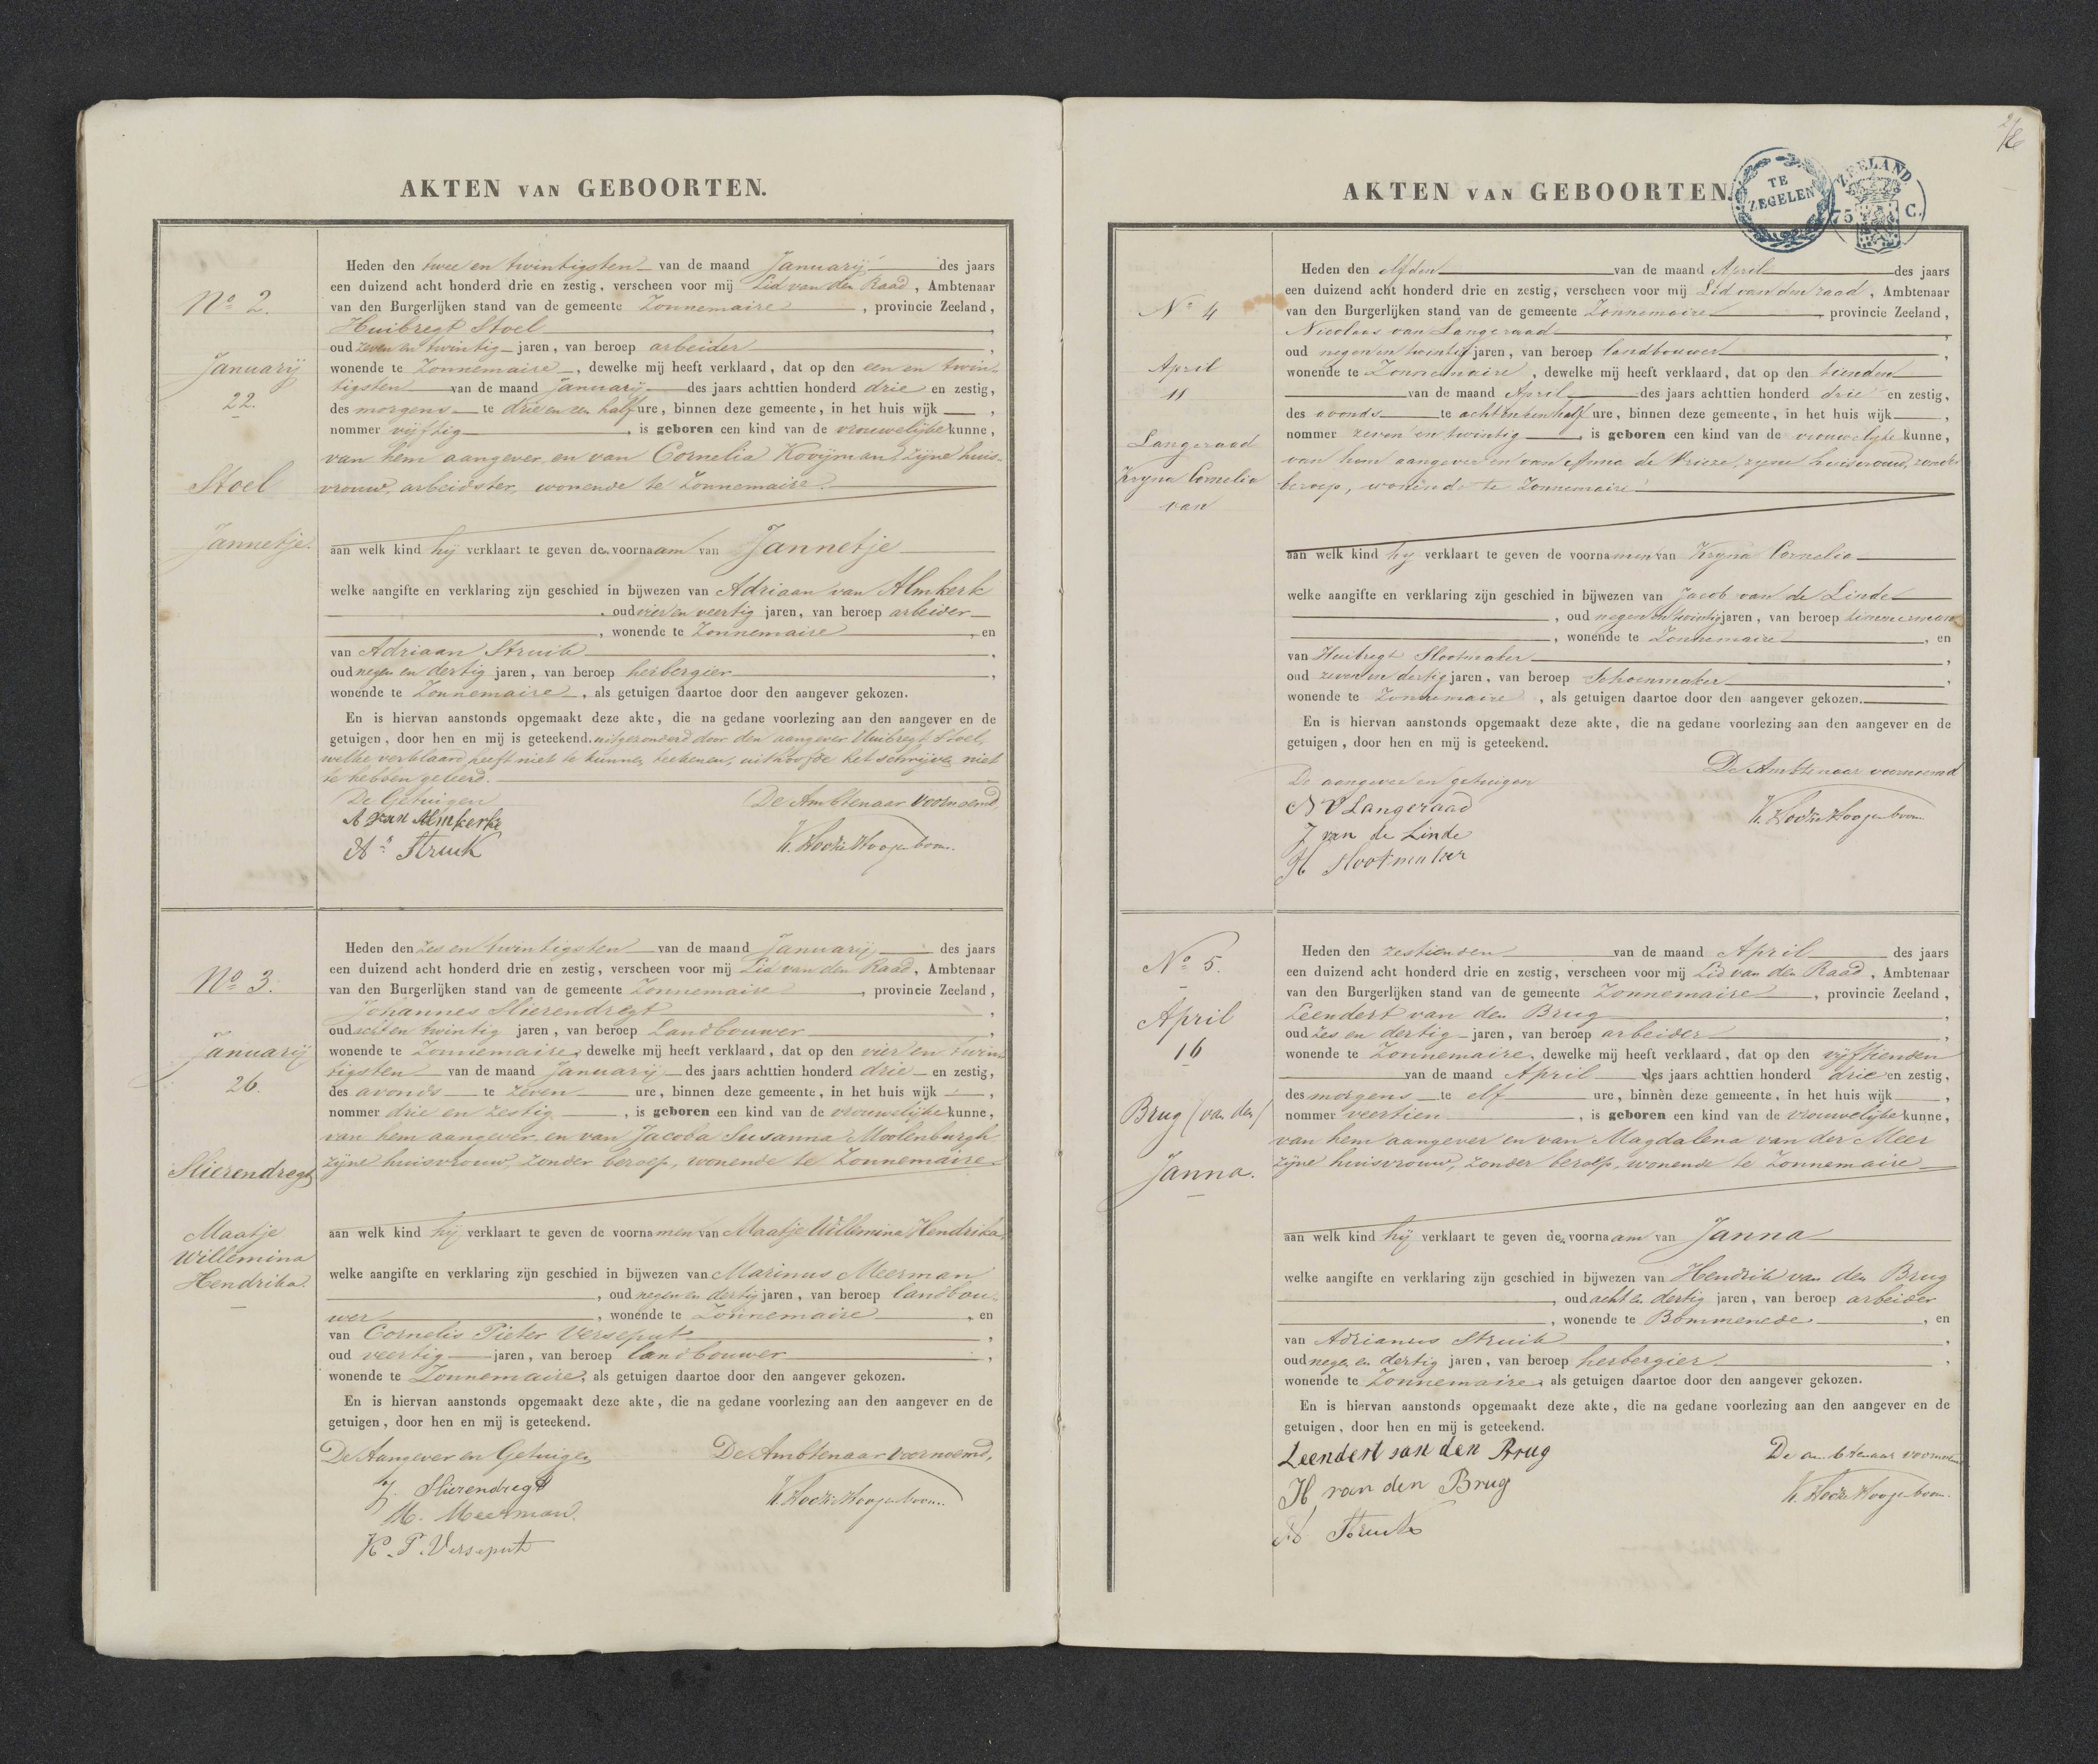 AKTEN VAN GEBOORTEN.
No 2.
Januarij
22.
Stoel
Jannetje.
Heden den twee en twintigsten van de maand Januarij des jaars
een duizend acht honderd drie en zestig, verscheen voor mij Lid van den Raad, Ambtenaar
van den Burgerlijken stand van de gemeente Zonnemaire, provincie Zeeland,
Huibregt Stoel,
oud zeven en twintig jaren, van beroep arbeider,
wonende te Zonnemaire, dewelke mij heeft verklaard, dat op den een en twin-
tigsten van de maand Januarij des jaars achttien honderd drie en zestig,
des morgens te drie en een half ure, binnen deze gemeente, in het huis wijk ,
nommer vijftig, is geboren een kind van de vrouwelijke kunne,
van hem aangever, en van Cornelia Kooijman, zijne huis-
vrouw, arbeidster, wonende te Zonnemaire.
aan welk kind hij verklaart te geven de voornaam van Jannetje
welke aangifte en verklaring zijn geschied in bijwezen van Adriaan van Almkerk
, oud vier en veertig jaren, van beroep arbeider
, wonende te Zonnemaire, en
van Adriaan Struik,
oud negen en dertig jaren, van beroep herbergier,
wonende te Zonnemaire, als getuigen daartoe door den aangever gekozen.
En is hiervan aanstonds opgemaakt deze akte, die na gedane voorlezing aan den aangever en de
getuigen, door hen en mij is geteekend. uitgezonderd door den aangever Huibregt Stoel,
welke verklaard heeft niet te kunnen teekenen, uit hoofde het schrijven niet
te hebben geleerd.
De Getuigen De Ambtenaar voornoemd,
A van Almkerke
An Struik K. Hocke Hoogenboom.
No 3.
Januarij
26.
Slierendregt
Maatje
Willemina
Hendrika.
Heden den zes en twintigsten van de maand Januarij des jaars
een duizend acht honderd drie en zestig, verscheen voor mij Lid van den Raad, Ambtenaar
van den Burgerlijken stand van de gemeente Zonnemaire, provincie Zeeland,
Johannes Slierendregt,
oud acht en twintig jaren, van beroep Landbouwer,
wonende te Zonnemaire, dewelke mij heeft verklaard, dat op den vier en twin-
tigsten van de maand Januarij des jaars achttien honderd drie en zestig,
des avonds te zeven ure, binnen deze gemeente, in het huis wijk ,
nommer drie en zestig, is geboren een kind van de vrouwelijke kunne,
van hem aangever, en van Jacoba Susanna Moolenburgh,
zijne huisvrouw, zonder beroep, wonende te Zonnemaire
aan welk kind hij verklaart te geven de voornamen van Maatje Willemina Hendrika,
welke aangifte en verklaring zijn geschied in bijwezen van Marinus Meerman
, oud negen en dertig jaren, van beroep landbou-
wer, wonende te Zonnemaire, en
van Cornelis Pieter Verseput,
oud veertig jaren, van beroep landbouwer,
wonende te Zonnemaire, als getuigen daartoe door den aangever gekozen.
En is hiervan aanstonds opgemaakt deze akte, die na gedane voorlezing aan den aangever en de
getuigen, door hen en mij is geteekend.
De Aangever en Getuigen De Ambtenaar voornoemd,
J. Slierendregt
M. Meerman. K. Hocke Hoogenboom.
K. P. Verseput
AKTEN VAN GEBOORTEN.
TE
ZEGELEN
ZEELAND.
75 C.
No 4
April
11
Langeraad
Kryna Cornelia
van
Heden den elfden van de maand April des jaars
een duizend acht honderd drie en zestig, verscheen voor mij Lid van den raad, Ambtenaar
van den Burgerlijken stand van de gemeente Zonnemaire, provincie Zeeland,
Nicolaas van Langeraad,
oud negen en twintig jaren, van beroep landbouwer,
wonende te Zonnemaire, dewelke mij heeft verklaard, dat op den tienden
van de maand April des jaars achttien honderd drie en zestig,
des avonds te acht en een half ure, binnen deze gemeente, in het huis wijk ,
nommer zeven en twintig, is geboren een kind van de vrouwelyke kunne,
van hem aangever en van Anna de Vrieze, zyne huisvrouw, zonder
beroep, wonende te Zonnemaire
aan welk kind hy verklaart te geven de voornamen van Kryna Cornelia
welke aangifte en verklaring zijn geschied in bijwezen van Jacob van de Linde
, oud negen en twintig jaren, van beroep timmerman
, wonende te Zonnemaire, en
van Huibregt Slootmaker,
oud zeven en dertig jaren, van beroep Schoenmaker,
wonende te Zonnemaire, als getuigen daartoe door den aangever gekozen.
En is hiervan aanstonds opgemaakt deze akte, die na gedane voorlezing aan den aangever en de
getuigen, door hen en mij is geteekend.
De aangever en getuigen De Ambtenaar voornoemd
N V Langeraad
J van de Linde K. Hocke Hoogenboom
H Slootmaker
No 5.
April
16
Brug (van den)
Janna.
Heden den zestienden van de maand April des jaars
een duizend acht honderd drie en zestig, verscheen voor mij Lid van den Raad, Ambtenaar
van den Burgerlijken stand van de gemeente Zonnemaire, provincie Zeeland,
Leendert van den Brug,
oud zes en dertig jaren, van beroep arbeider,
wonende te Zonnemaire, dewelke mij heeft verklaard, dat op den vijftienden
van de maand April des jaars achttien honderd drie en zestig,
des morgens te elf ure, binnen deze gemeente, in het huis wijk ,
nommer veertien, is geboren een kind van de vrouwelijke kunne,
van hem aangever en van Magdalena van der Meer
zijne huisvrouw, zonder beroep, wonende te Zonnemaire
aan welk kind hij verklaart te geven de voornaam van Janna
welke aangifte en verklaring zijn geschied in bijwezen van Hendrik van den Brug
, oud acht en dertig jaren, van beroep arbeider
, wonende te Bommenede, en
van Adrianus Struik,
oud negen en dertig jaren, van beroep herbergier,
wonende te Zonnemaire, als getuigen daartoe door den aangever gekozen.
En is hiervan aanstonds opgemaakt deze akte, die na gedane voorlezing aan den aangever en de
getuigen, door hen en mij is geteekend.
Leendert van den Brug De ambtenaar voornoemd
H van den Brug K. Hocke Hoogenboom.
A Struik